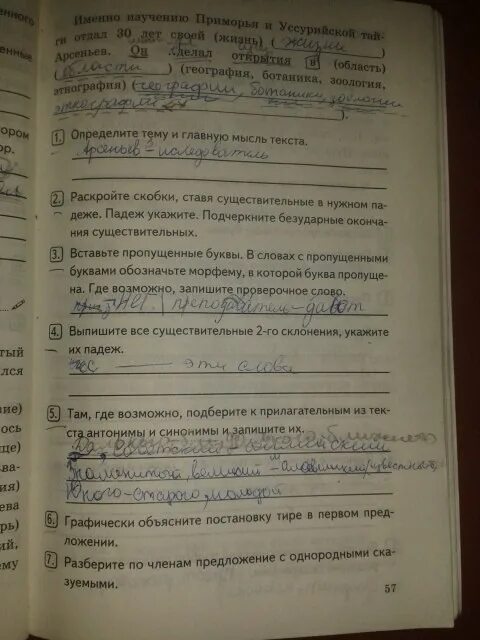 Именно изучению Приморья и Уссурийской тай-
ги отдал 30 лет своей (жизнь) ( жизни )
Арсеньев. Он сделал открытия в (область)
( области ) (география, ботаника, зоология,
этнография) ( географии, ботаники, зоологии
этнографии ).
1. Определите тему и главную мысль текста.
Арсеньев - иследователь
2. Раскройте скобки, ставя существительные в нужном па-
деже. Падеж укажите. Подчеркните безударные оконча-
ния существительных.
3. Вставьте пропущенные буквы. В словах с пропущенными
буквами обозначьте морфему, в которой буква пропуще-
на. Где возможно, запишите проверочное слово.
4. Выпишите все существительные 2-го склонения, укажите
их падеж.
эти слова
5. Там, где возможно, подберите к прилагательным из тек-
ста антонимы и синонимы и запишите их.
Знаменитый, великий
Юного-старого, молодой
6. Графически объясните постановку тире в первом пред-
ложении.
7. Разберите по членам предложение с однородными ска-
зуемыми.
57